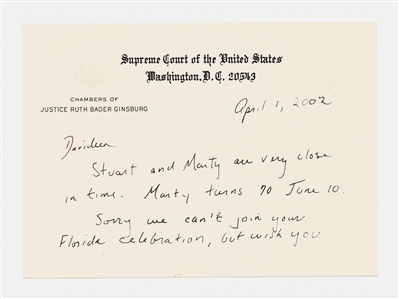 Supreme Court of the United States
Washington, D.C. 20543
CHAMBERS OF
JUSTICE RUTH BADER GINSBURG
April 1, 2002
Stuart and Marty are very close
in time. Marty turns 70 June 10.
Sorry we can't join your
Florida celebration, but wish you